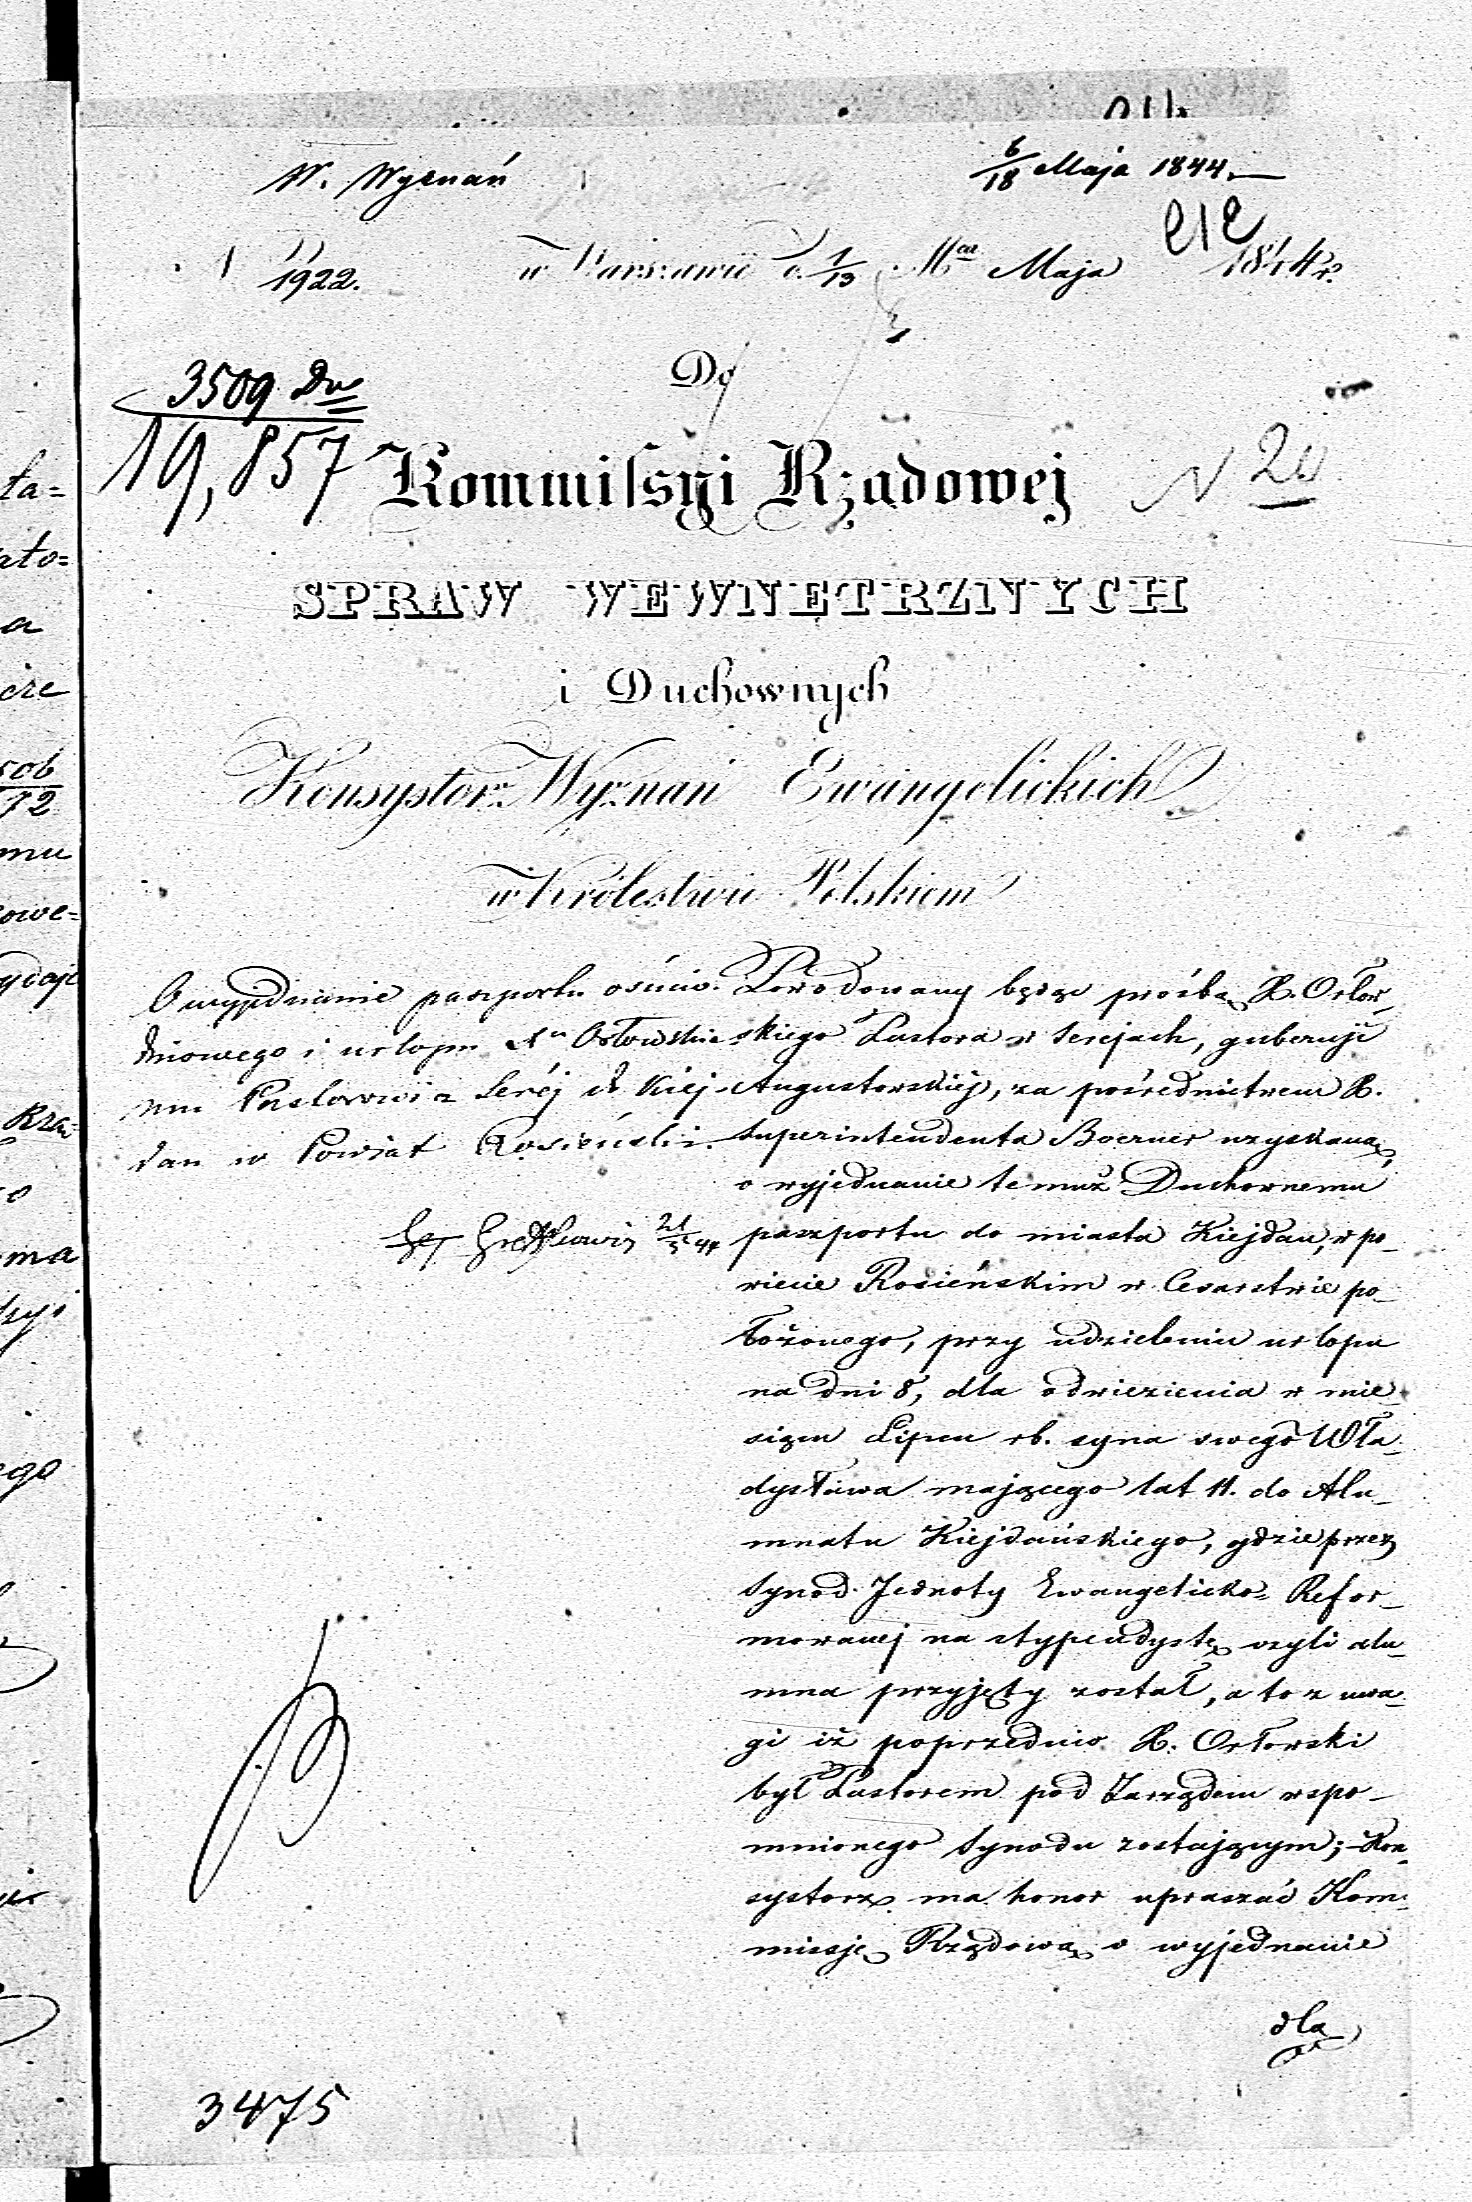 W. Wyznań
6/18 Maja 1844.
212
1922.
w Warszawie d. 1/13 Mca Maja 1844 r.
3509 Dw
19,857
Do
Kommissyi Rządowej
N 20
SPRAW WEWNĘTRZNYCH
i Duchownych
Konsystorz Wyznań Ewangelickich
w Królestwie Polskiem
O wyjednanie paszportu ośmio-
dniowego i urlopu Xu Orłowskie-
mu Pastorowi z Serej do Kiej-
dan w Powiat Rosieński.
21/5 44
Powodowany będąc prośbą X. Orłow-
skiego Pastora w Serejach, gubernji
Augustowskiej, za pośrednictwem X.
Superintendenta Boerner uzyskaną,
o wyjednanie temuż Duchownemu
paszportu do miasta Kiejdan, w po-
wiecie Rosieńskim w Cesarstwie po-
łożonego, przy udzieleniu urlopu
na dni 8, dla odwiezienia w mie-
siącu Lipcu rb. syna swego Wła-
dysława mającego lat 11. do Alu-
mnatu Kiejdańskiego, gdzie przez
Synod Jednoty Ewangelicko-Refor-
mowanej na stypendystę czyli alu-
mna przyjęty został, a to z uwa-
gi iż poprzednio X. Orłowski
był Pastorem pod Zarządem wspo-
mnionego Synodu zostającym; Kon-
systorz ma honor upraszać Kom-
missję Rządową o wyjednanie
dla
3475